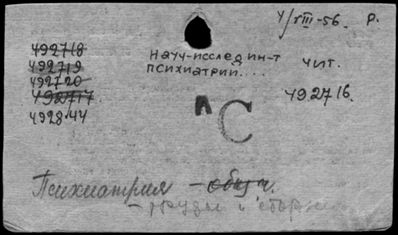 4/VIII-56. р.
492718
492719
492720
492717
492844
Науч-исслед ин-т
психиатрии....
чит.
492716.
л С
Психиатрия - общ.
- труды и сборн.